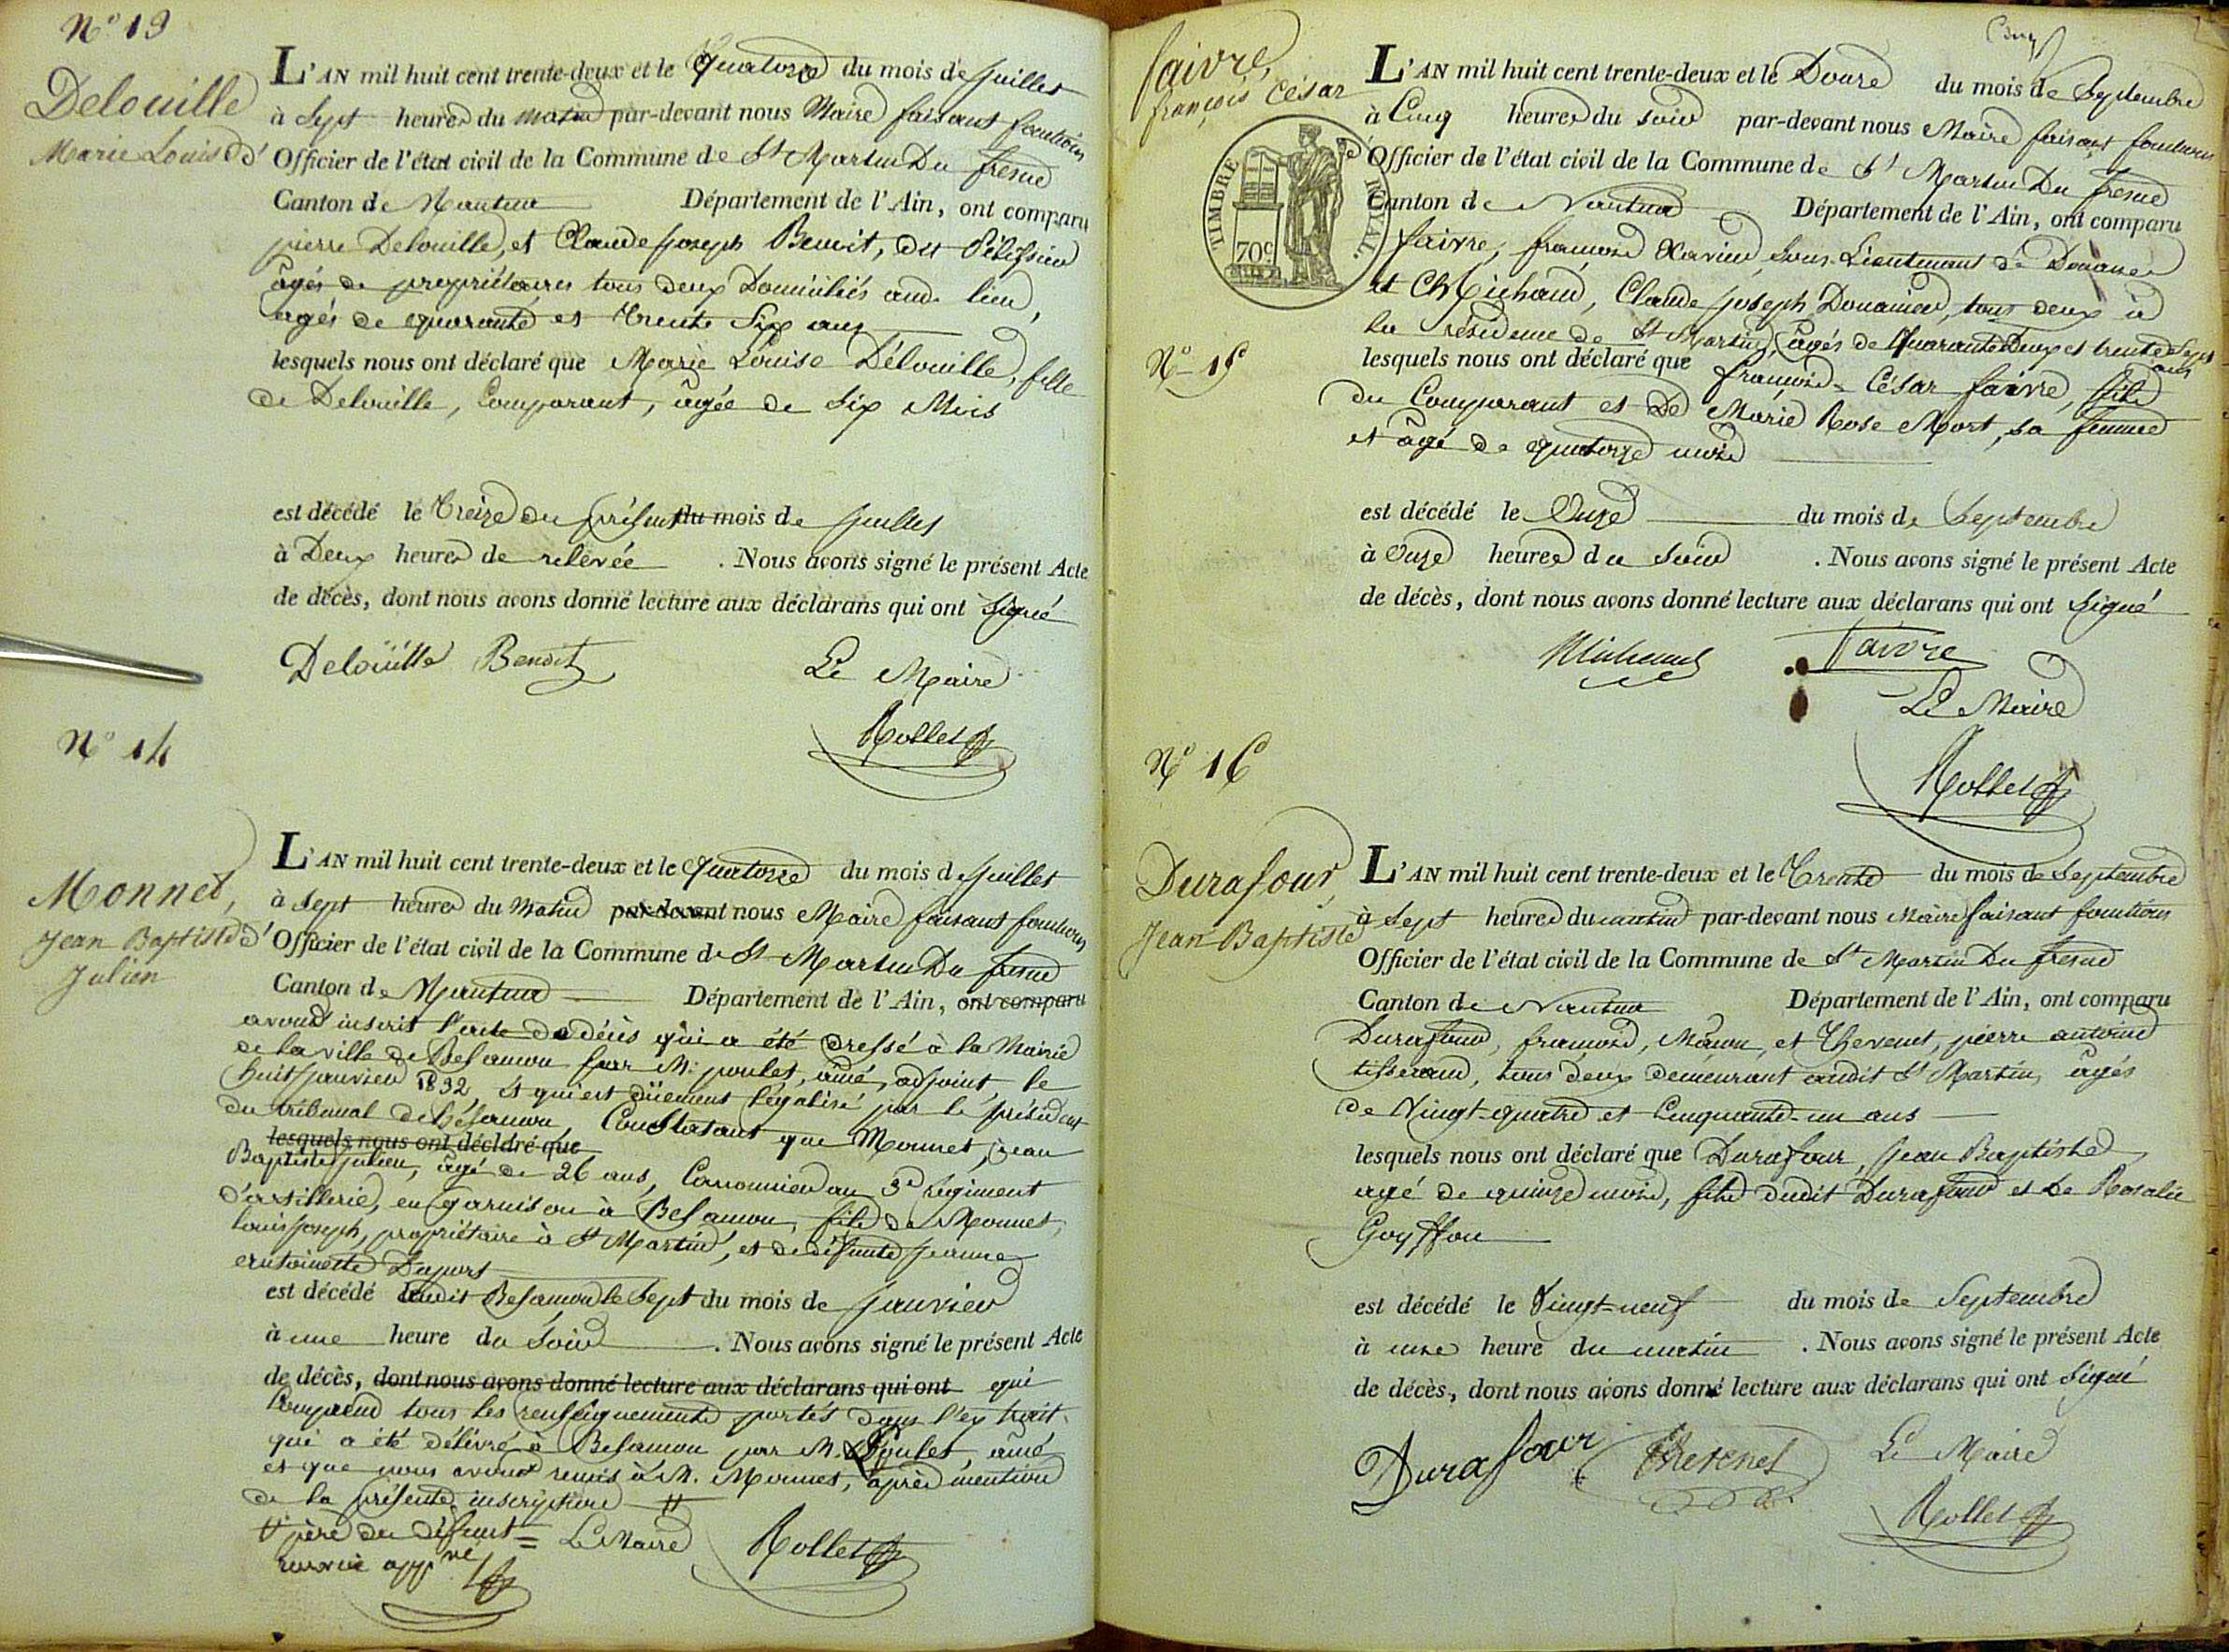 N° 13
Delouille
Marie Louise
L'AN mil huit cent trente-deux et le Quatorze du mois de Juillet
à Sept heures du matin par-devant nous Maire faisant fonctions
d'Officier de l'état civil de la Commune de St Martin Du fresne
Canton de Nantua Département de l'Ain, ont comparu
pierre Delouille, et Claude Joseph Benoit, dit
âgés de propriétaires tous deux Domiciliés aud. lieu,
agés de quarante et trente Six ans
lesquels nous ont déclaré que Marie Louise Delouille, fille
de Delouille, Comparant, âgée de Six Mois
est décédé le treize du présent du mois de Juillet
à Deux heures de relevée . Nous avons signé le présent Acte
de décès, dont nous avons donné lecture aux déclarans qui ont Signé
Deloüille Benoit Le Maire
Rollet
N° 14
Monnet,
Jean Baptiste
Julien
L'AN mil huit cent trente-deux et le Quatorze du mois de Juillet
à Sept heures du Matin par-devant nous Maire faisant fonctions
d'Officier de l'état civil de la Commune de St Martin Du fresne
Canton de Nantua Département de l'Ain, ont comparu
avons inscrit l'acte de décès qui a été dressé à la Mairie
de la ville de Besançon par Mr poulet, aîné, adjoint le
huit Janvier 1832, et qui est düement légalisé par le président
du tribunal de Besançon, Constatant que Monnet, Jean
lesquels nous ont déclaré que
Baptiste Julien, âgé de 26 ans, Canonnier au 3e régiment
d'artillerie, en garnison à Besançon, fils de Monnet,
louis Joseph, propriétaire à St Martin, et de défunte Jeanne
antoinette Duport
est décédé audit Besançon le Sept du mois de Janvier
à une heure du Soir . Nous avons signé le présent Acte
de décès, dont nous avons donné lecture aux déclarans qui ont qui
Comprend tous les renseignements portés dans l'extrait
qui a été délivré à Besançon par M. Poulet, aîné
et que nous avons remis à M. Monnet, après mention
de la présente inscription #
# père du défunt = Le Maire Rollet
renvoi appvé
Cinq
faivre,
françois César
TIMBRE ROYAL.
70c
N° 15
L'AN mil huit cent trente-deux et le Douze du mois de Septembre
à Cinq heures du soir par-devant nous Maire faisant fonctions
d'Officier de l'état civil de la Commune de St Martin Du fresne
Canton de Nantua Département de l'Ain, ont comparu
faivre, françois Xavier, Sous-Lieutenant de Douanes
et Michaud, Claude Joseph Douanier, tous deux à
la résidence de St Martin, âgés de Quarante Deux et trente Sept ans
lesquels nous ont déclaré que françois César faivre, fils
du Comparant et De Marie Rose Mort, sa femme
et âgé de quatorze mois
est décédé le Onze du mois de Septembre
à Onze heures du Soir . Nous avons signé le présent Acte
de décès, dont nous avons donné lecture aux déclarans qui ont Signé
Michaud Faivre
Le Maire
Rollet
N° 16
Durafour,
Jean Baptiste
L'AN mil huit cent trente-deux et le Trente du mois de Septembre
à Sept heures du matin par-devant nous Maire faisant fonctions
Officier de l'état civil de la Commune de St Martin Du fresne
Canton de Nantua Département de l'Ain, ont comparu
Durafour, françois, Maçon, et Thevenet, pierre antoine
tisserand, tous deux demeurant audit St Martin, âgés
de Vingt-quatre et Cinquante-un ans
lesquels nous ont déclaré que Durafour, Jean Baptiste
agé de quinze mois, fils dudit Durafour et De Rosalie
Goyffon
est décédé le Vingt-neuf du mois de Septembre
à une heure du matin . Nous avons signé le présent Acte
de décès, dont nous avons donné lecture aux déclarans qui ont Signé
Durafour Thevenet Le Maire
Rollet